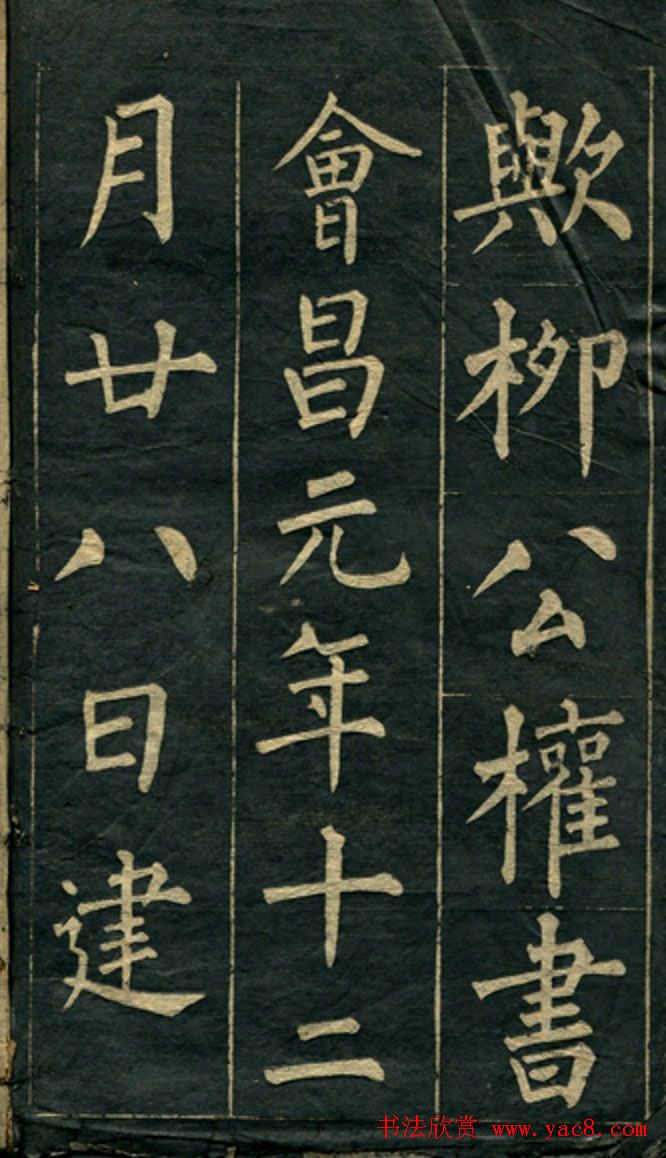 歟柳公權書
會昌元年十二
月廿八日建
书法欣赏 www.yac8.com